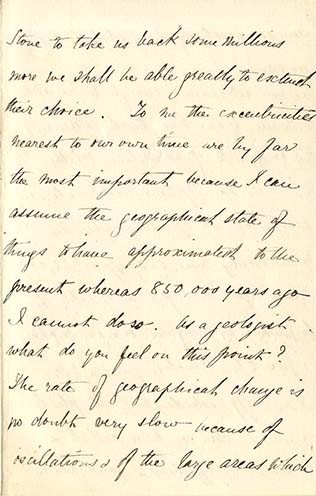 Stone to take us back some millions
more we shall be able greatly to extend
their choice. To me the excentricities
nearest to our own time are by far
the most important because I can
assume the geographical state of
things to have approximated to the
present whereas 850,000 years ago
I cannot do so. As a geologist
what do you feel on this point?
The rate of geographical change is
no doubt very slow because of
oscillations & of the large areas which